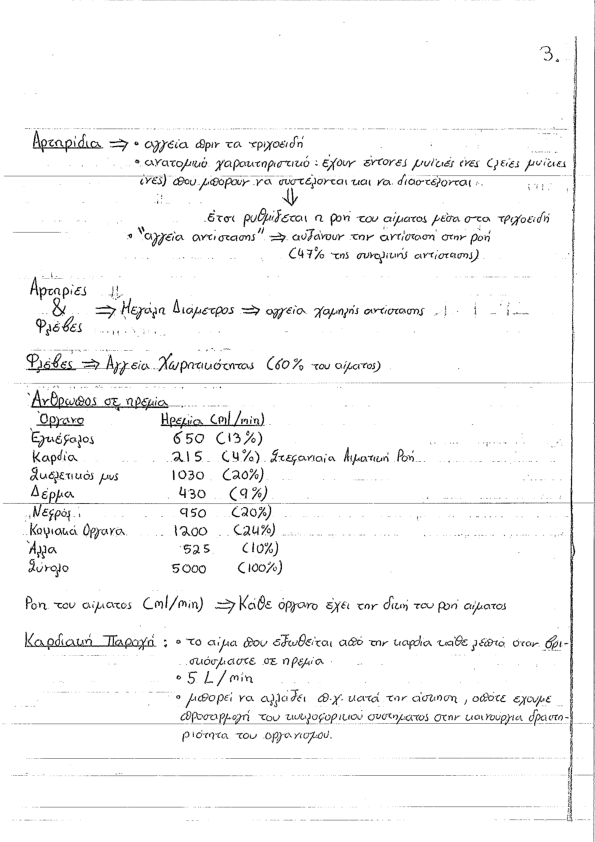 3.
Αρτηρίδια ⇒ • αγγεία πριν τα τριχοειδή
• ανατομικό χαρακτηριστικό : έχουν έντονες μυϊκές ίνες (λείες μυϊκές
ίνες) που μπορουν να συστέλονται και να διαστέλονται.
⇓
έτσι ρυθμίζεται η ροή του αίματος μέσα στα τριχοειδή
• "αγγεία αντίστασης" ⇒ αυξάνουν την αντίσταση στην ροή
(47% της συνολικής αντίστασης)
Αρτηρίες
& ⇒ Μεγάλη Διάμετρος ⇒ αγγεία χαμηλής αντίστασης
Φλέβες
Φλέβες ⇒ Αγγεία Χωρητικότητας (60% του αίματος)
Άνθρωπος σε ηρεμία
Όργανο Ηρεμία (ml/min)
Εγκέφαλος 650 (13%)
Καρδία 215 (4%) Στεφανιαία Αιματική Ροή
Σκελετικός μυς 1030 (20%)
Δέρμα 430 (9%)
Νεφροί 950 (20%)
Κοιλιακά Όργανα 1200 (24%)
Άλλα 525 (10%)
Σύνολο 5000 (100%)
Ροη του αίματος (ml/min) ⇒ Κάθε όργανο έχει την δική του ροή αίματος
Καρδιακή Παροχή : • το αίμα που εξωθείται από την καρδια κάθε λεπτό όταν βρι-
σκόμαστε σε ηρεμία
• 5 L/min
• μπορεί να αλλάξει π.χ. κατά την άσκηση, οπότε έχουμε
προσαρμογή του κυκλοφορικού συστήματος στην καινουργια δραστη-
ριότητα του οργανισμού.